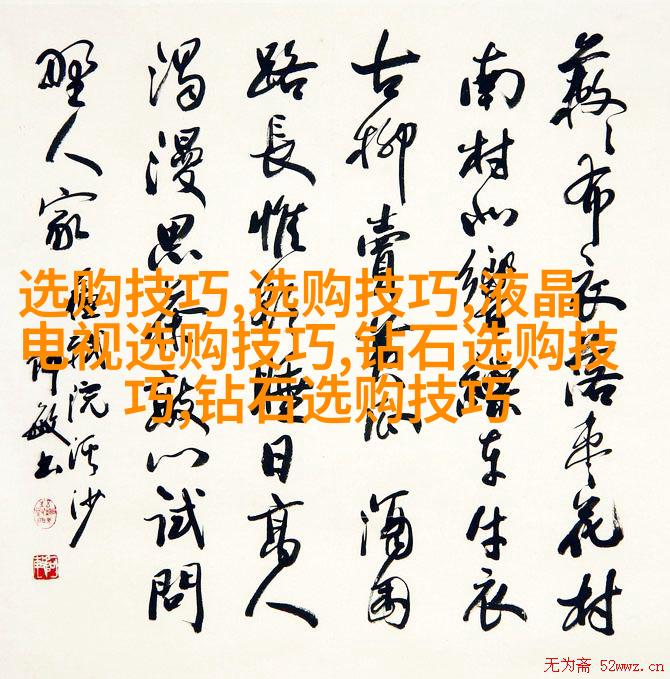 蔌々布衣落枣花村
南村北響繰车牛衣
古柳賣黄瓜 酒困
路長惟欲睡日高人
渴漫思茶敲门试問
野人家
院溪沙
敏书
选购技巧,选购技巧,液晶
电视选购技巧,钻石选购技
巧,钻石选购技巧
无为斋 52wwz.cn